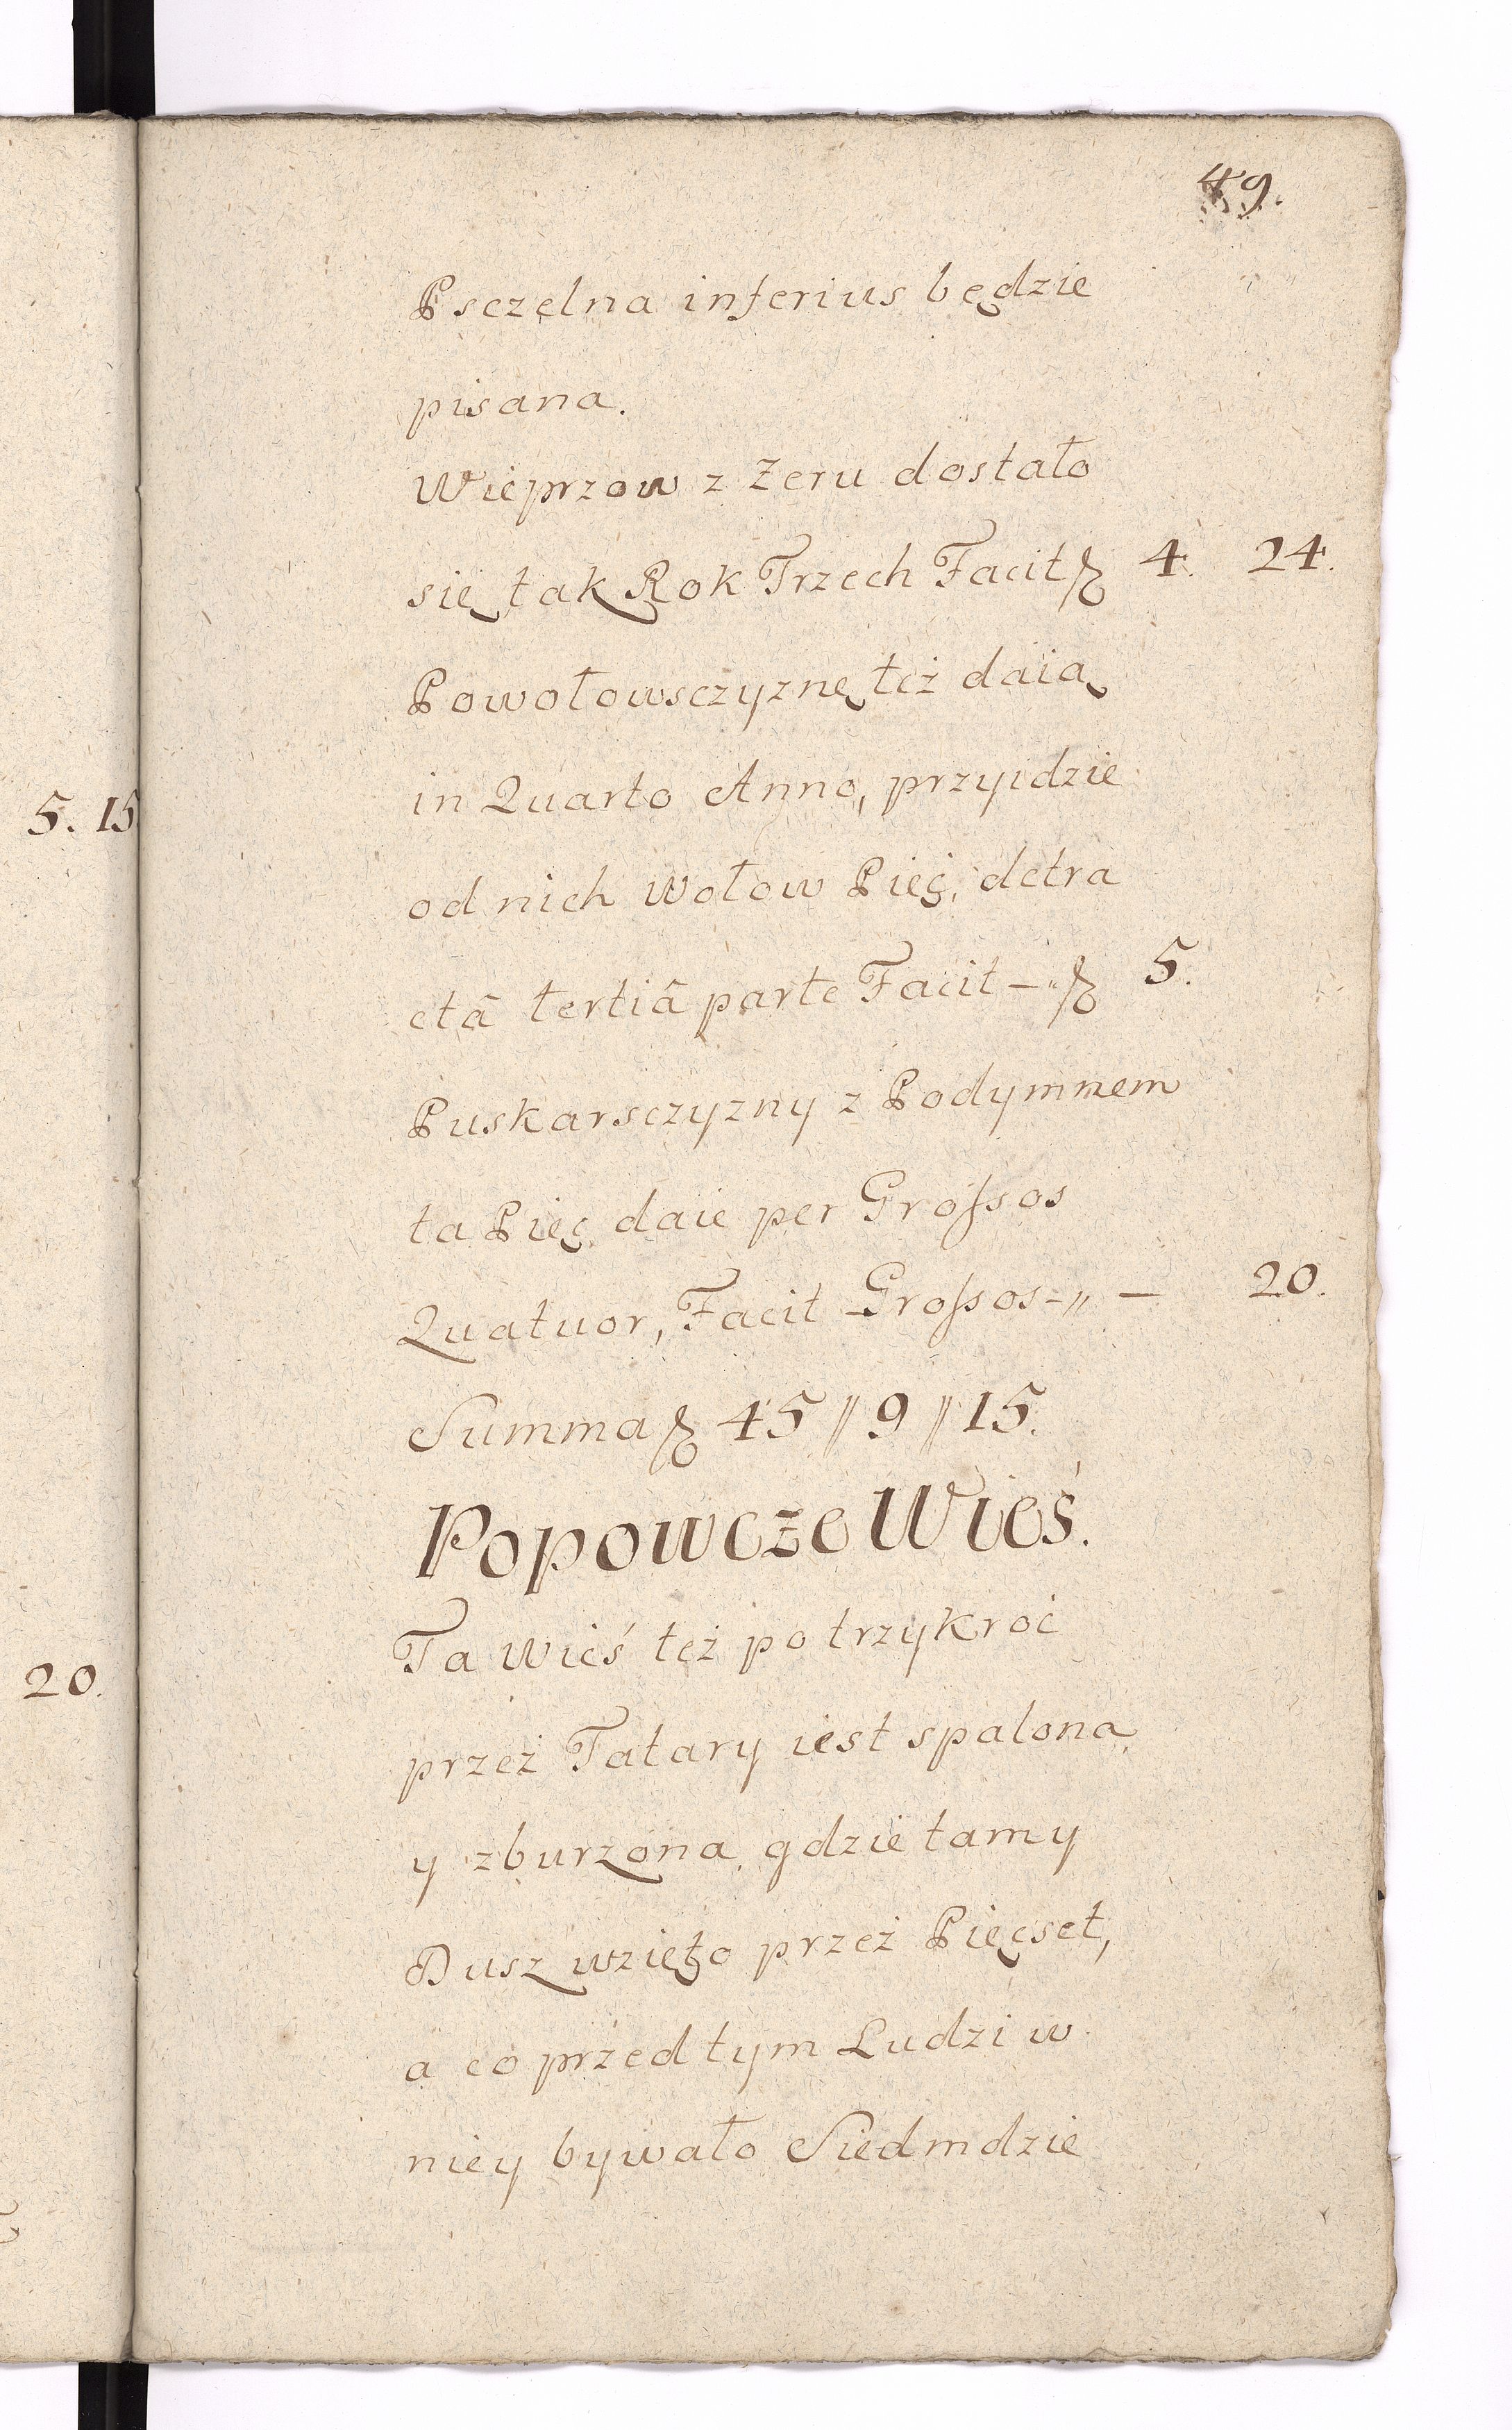 49.
Psczelna inferius będzie
pisana.
Wieprzow z Żeru dostało
się tak Rok Trzech Facit 4. 24.
Powołowsczyznę też daią
in Quarto Anno, przyidzie
od nich Wołow Pięć, detra
ctâ tertiâ parte Facit - 5.
Puskarsczyzny z Podymnem
ta Pięć daie per Groſsos
Quatuor, Facit Groſsos-„ — 20.
Summa 45 // 9 // 15.
Popowcze Wieś.
Ta Wieś też po trzykroć
przez Tatary iest spalona,
y zburzona, gdzie tam y
Dusz wzięto przez Pięćset,
a co przed tym Ludzi w
niey bywało Siedmdzie
5. 15
20.